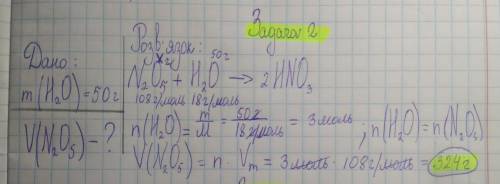 Задача 2
Дано:
m(H₂O)=50г
V(N₂O₅)-?
Розв'язок:
xг 50г
N₂O₅ + H₂O → 2HNO₃
108г/моль 18г/моль
n(H₂O) = m/M = 50г/18г/моль = 3моль ; n(H₂O)=n(N₂O₅)
V(N₂O₅) = n · Vm = 3моль · 108г/моль = 324г